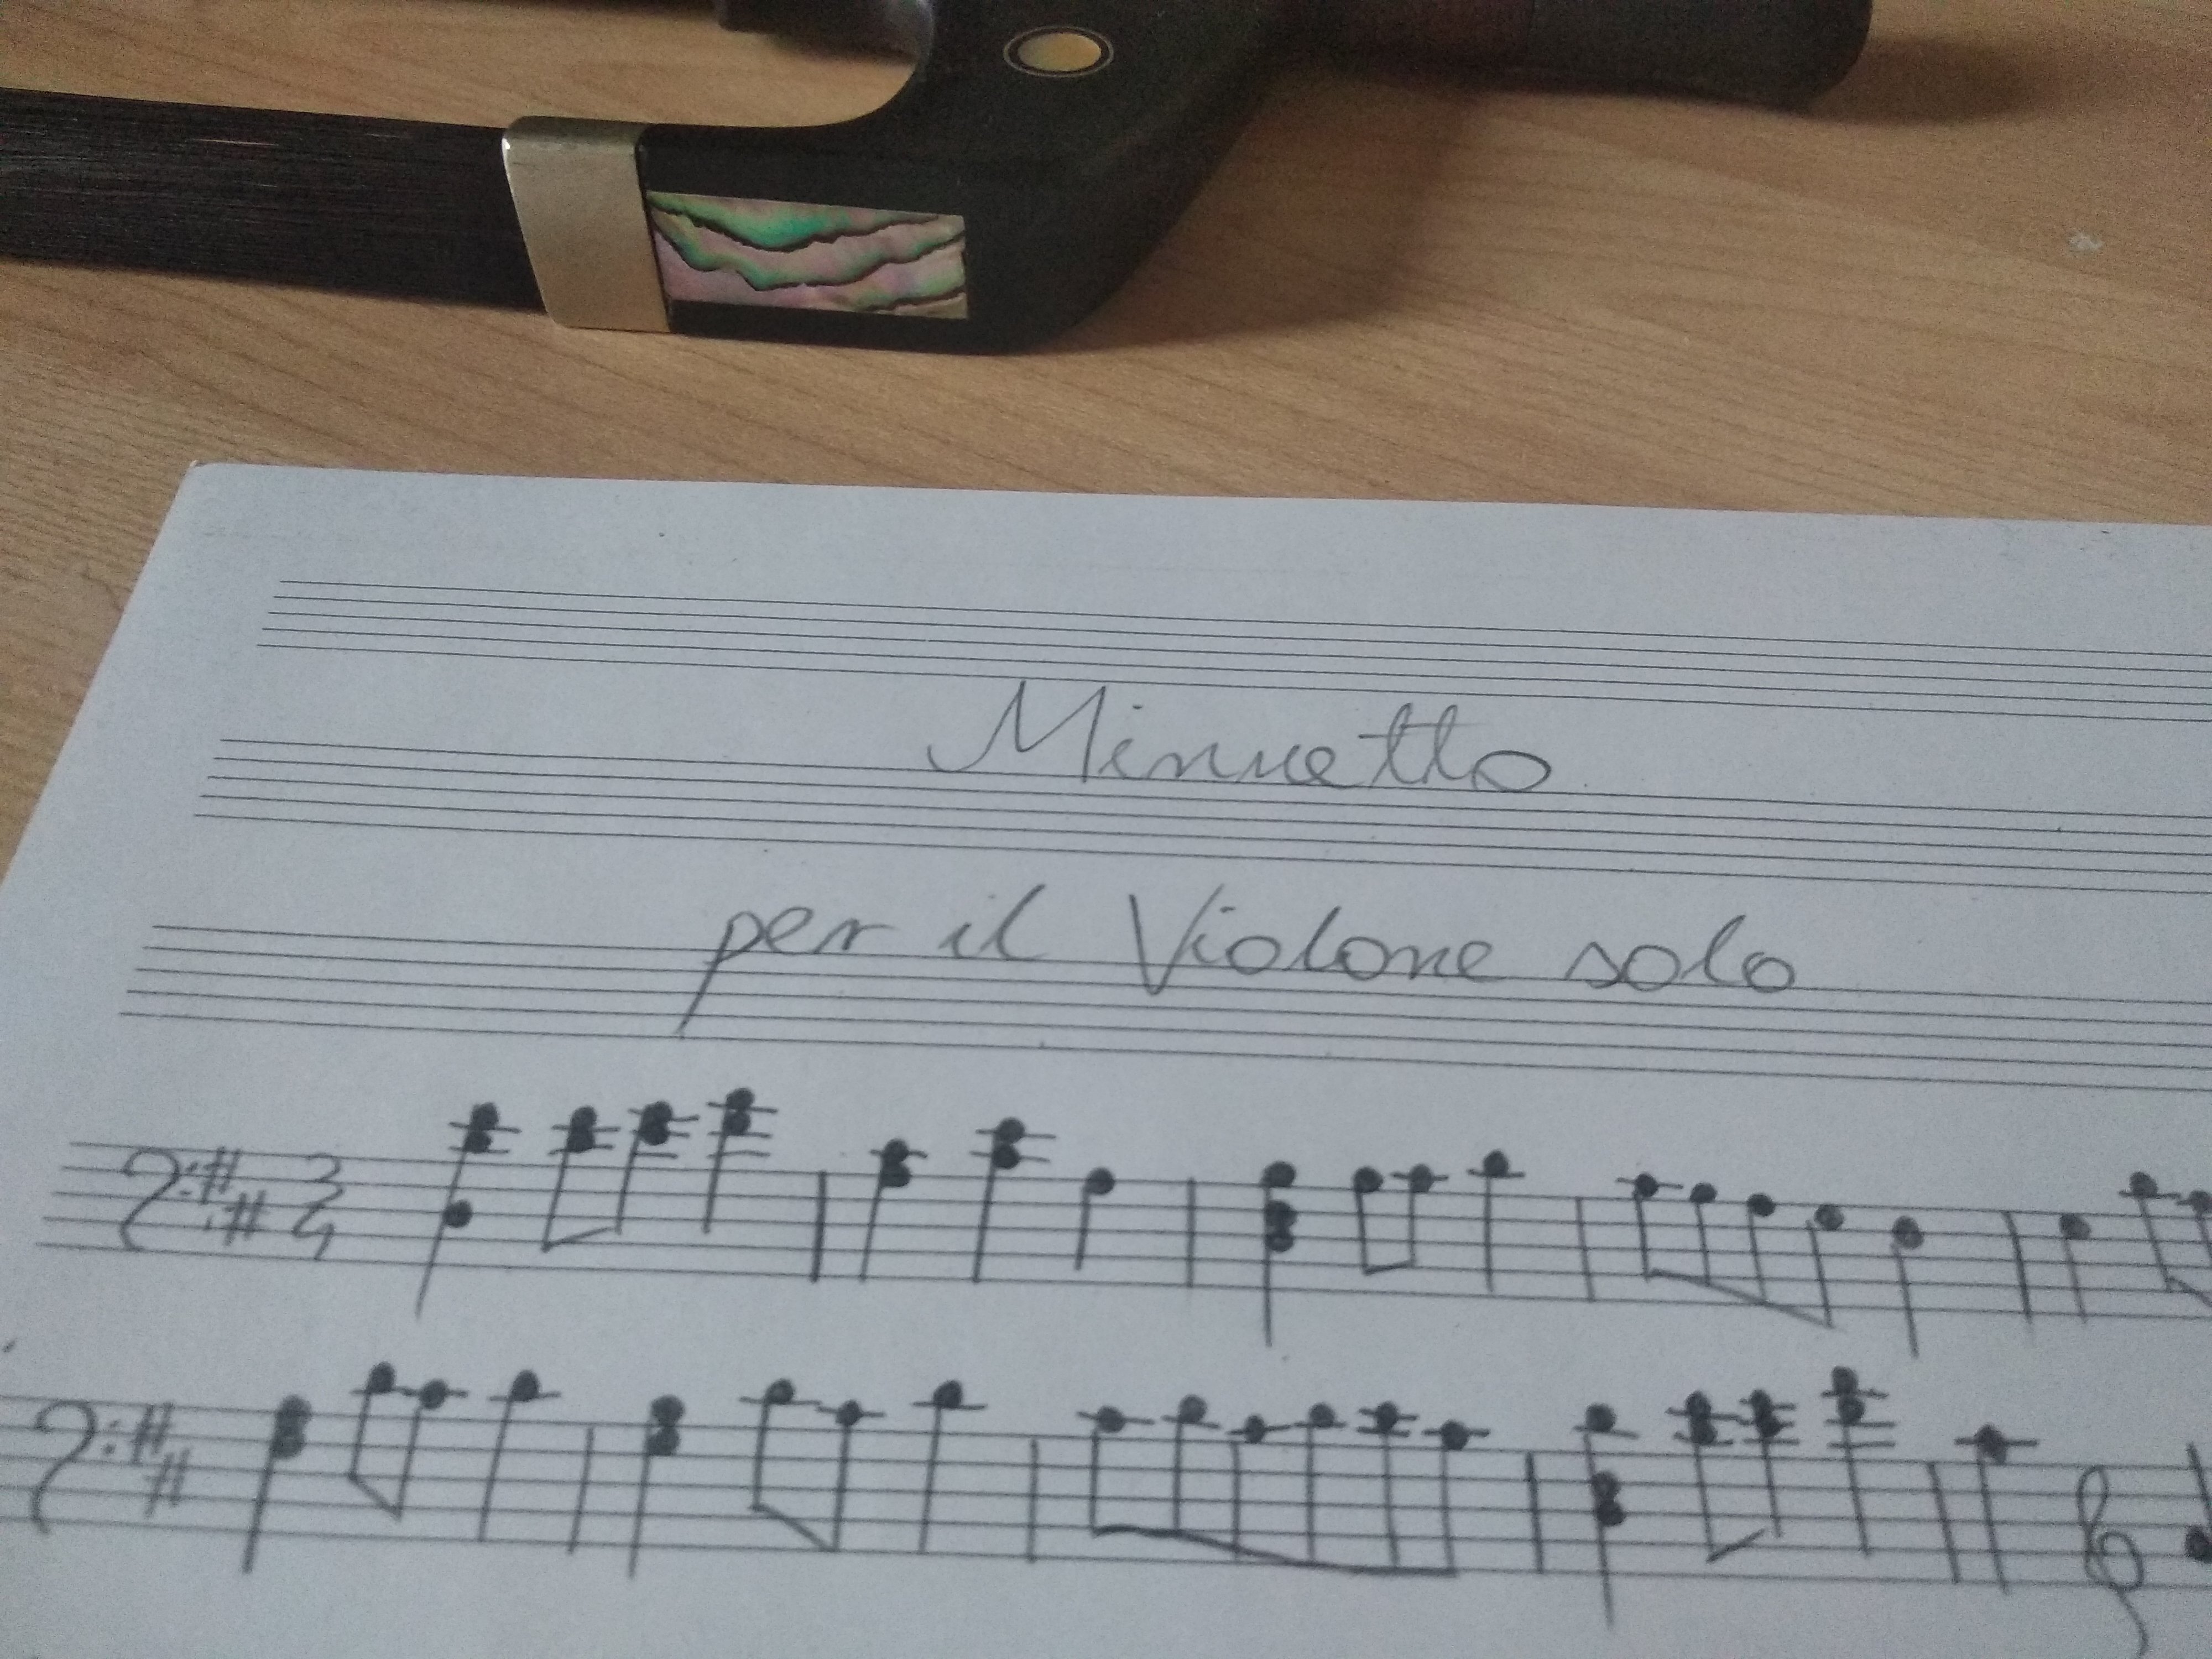 Minuetto
per il Violone solo